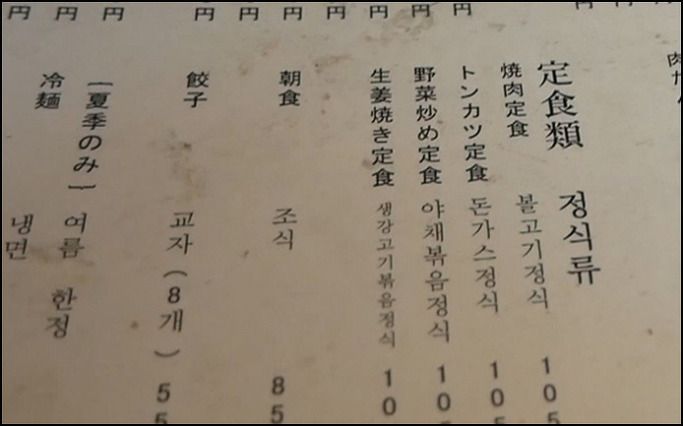 定食類 정식류
焼肉定食 불고기정식 105
トンカツ定食 돈가스정식 105
野菜炒め定食 야채볶음정식 105
生姜焼き定食 생강고기볶음정식 10
朝食 조식 85
餃子 교자(8개) 55
[夏季のみ] 여름 한정
冷麺 냉면
円
円
円
円
円
円
円
円
円